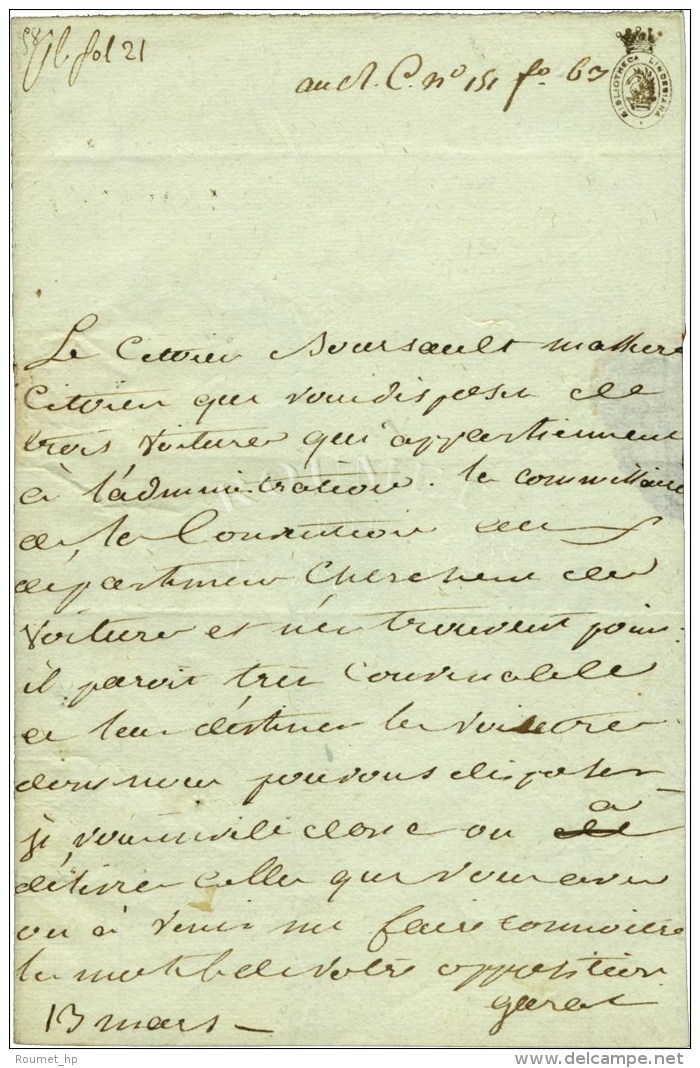 fol 21
C. nº 151 fo. 63
BIBLIOTHECA LINDESIANA
Le Citoien Boursault m'assure
Citoien que vous disposez de
trois Voitures qui appartiennent
à l'administration. les commissaires
de la Convention
département Cherchent des
Voitures et n'en trouvent point.
il paroit très Convenable
de leur destiner les voitures
dont nous pouvons disposer
je vous invite donc ou à
délivrer celles que vous avez
ou à venir me faire connoitre
les motifs de votre opposition
garat
13 mars
Roumet_hp
delcampe.net